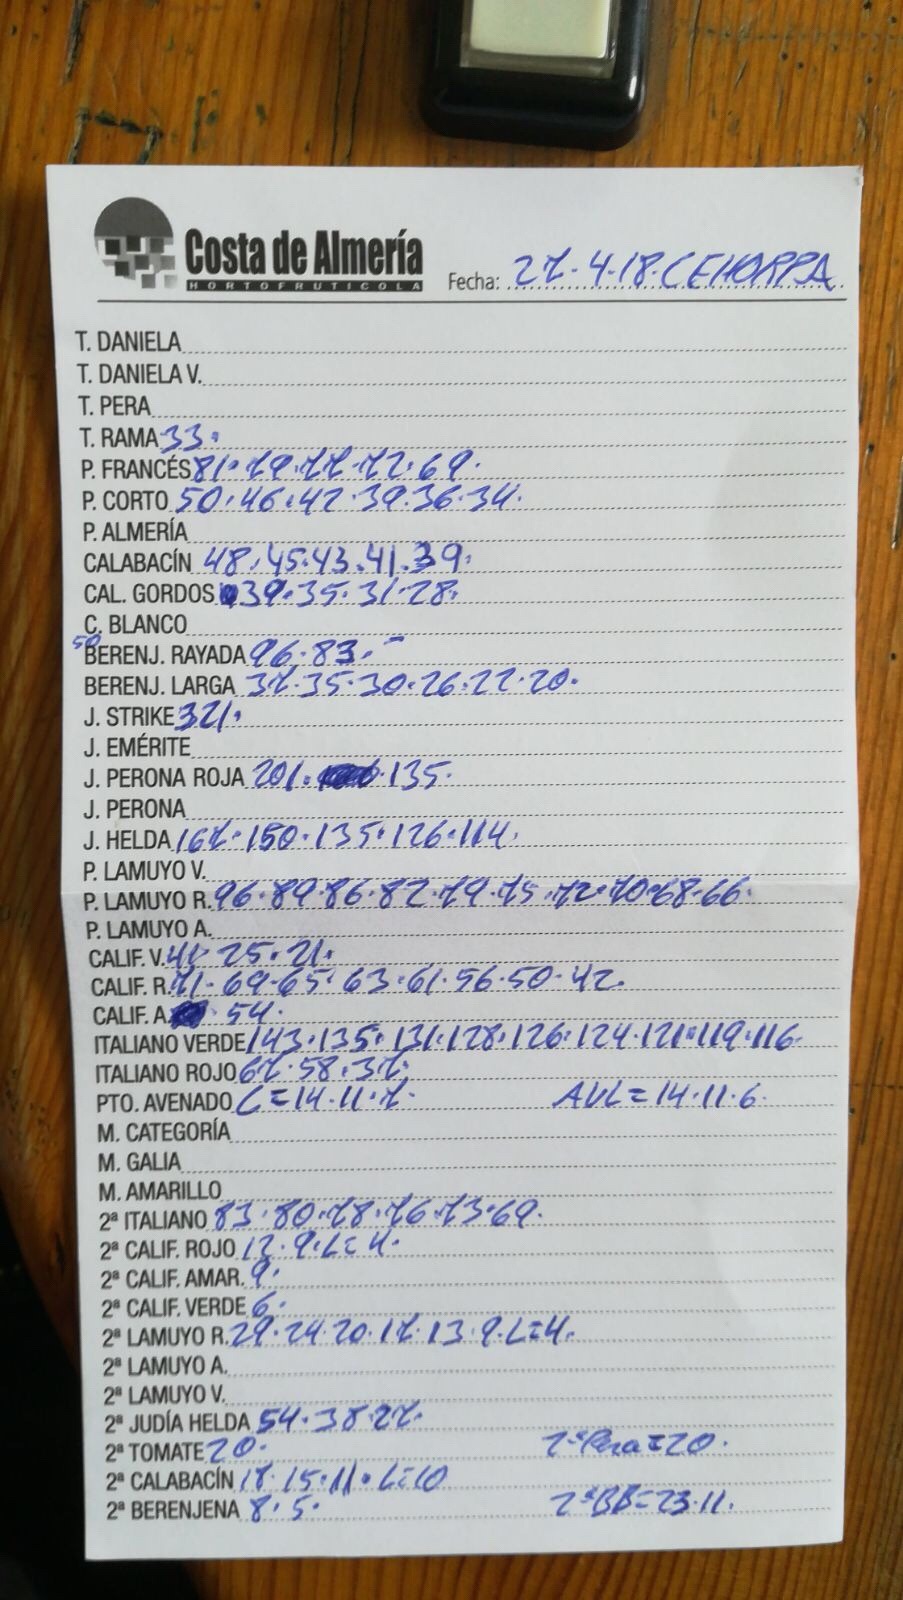 Costa de Almería
HORTOFRUTICOLA
Fecha: 27.4.18.CEHORPA
T. DANIELA
T. DANIELA V.
T. PERA
T. RAMA 33.
P. FRANCÉS 81.79.77.72.69.
P. CORTO 50.46.42.39.36.34.
P. ALMERÍA
CALABACÍN 48.45.43.41.39.
CAL. GORDOS 39.35.31.28.
C. BLANCO
50
BERENJ. RAYADA 96.83.-
BERENJ. LARGA 37.35.30.26.22.20.
J. STRIKE 321.
J. EMÉRITE
J. PERONA ROJA 201. 135.
J. PERONA
J. HELDA 167.150.135.126.114.
P. LAMUYO V.
P. LAMUYO R. 96.89.86.82.79.75.72.70.68.66.
P. LAMUYO A.
CALIF. V. 41.25.21.
CALIF. R. 71.69.65.63.61.56.50.42.
CALIF. A. 54.
ITALIANO VERDE 143.135.131.128.126.124.121.119.116.
ITALIANO ROJO 67.58.37.
PTO. AVENADO C=14.11.7. AVL=14.11.6.
M. CATEGORÍA
M. GALIA
M. AMARILLO
2ª ITALIANO 83.80.78.76.73.69.
2ª CALIF. ROJO 12.9.L=4.
2ª CALIF. AMAR. 9.
2ª CALIF. VERDE 6.
2ª LAMUYO R. 29.24.20.17.13.9.L=4.
2ª LAMUYO A.
2ª LAMUYO V.
2ª JUDÍA HELDA 54.38.27.
2ª TOMATE 20. 2ªPera=20.
2ª CALABACÍN 18.15.11.L=10
2ª BERENJENA 8.5. 2ªBB=23.11.